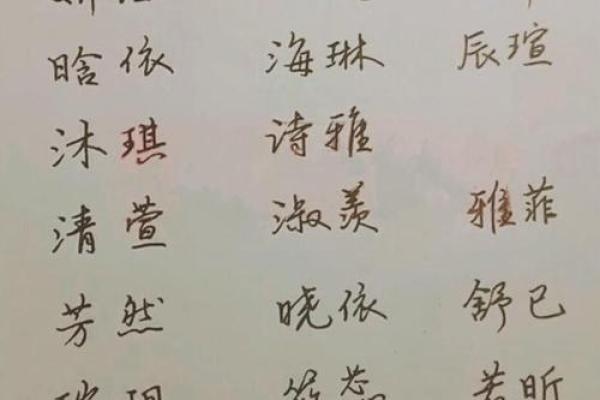 晗依 海琳 辰瑄
沐琪 诗雅
清萱 淑羡 雅菲
芳然 晓依 舒已
若昕